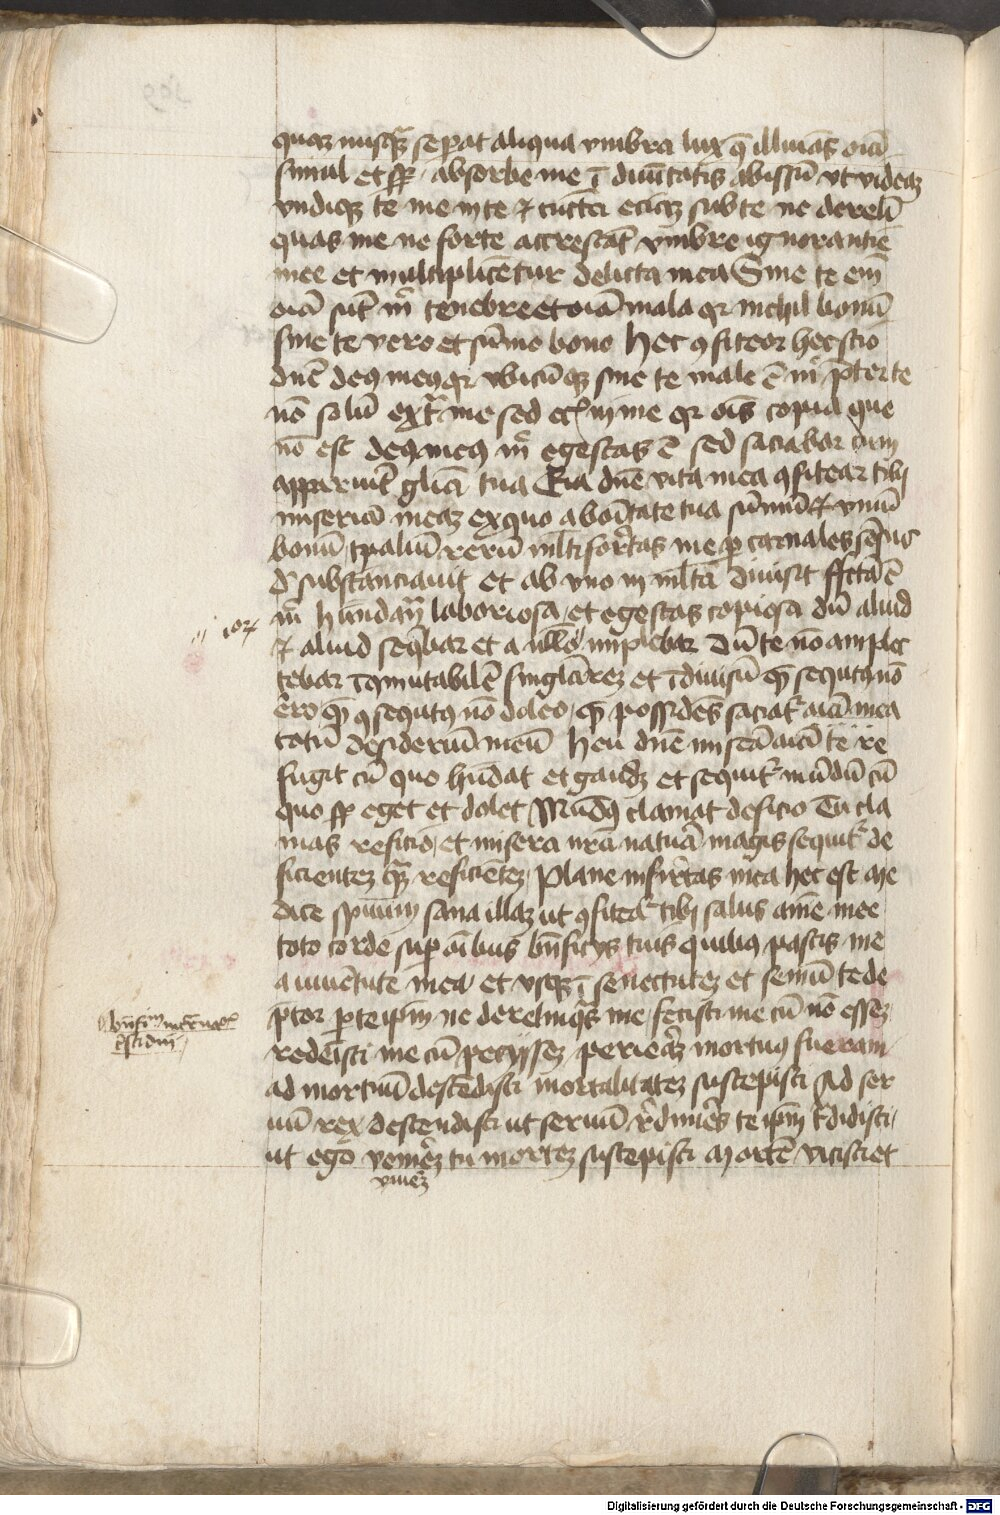 quaz nusqᷓ sepat aliqua vmbra lux q̄ illumās oīa
simul et sp̄ absorbe me ī diuītatis abissū vt videaz
vndiqz te me in te et cūcta eciaz sub te ne derelī
quas me ne forte accrescāt vmbre ignorantie
mee et multiplicētur delicta mea Sine te em̄
oīa sūt m̄ tenebre et oīa mala qr nichil bonū
sine te vero et sūmo bono hec ꝯfiteor hec scio
dn̄e deꝯ meꝯ qr vbicūqz sine te male ē m̄ p̄ter te
nō solū ext̄ me sed ec̄ in me qr oīs copia que
nō est deꝯ meꝯ m̄ egestas ē sed saciabor cum
apparuīt glīa tua Eia dn̄e vita mea ꝯfitear tibi
miseriā meaz ex quo a boītate tua sūmū et vnū
bonū tp̄aliū rerū ml̄tiformitas me p̄ carnales sēsus
d̄substanciauit et ab vno in ml̄ta diuisit fc̄ta ē
m̄ habundātia laboriosa et egestas copiosa dū aliud
et aliud seq̄bar et a nullo implebar Dū te nō amplec
tebar īꝯmutabilē singlarez et īdiuisū qᷓ secutꝯ nō
erro qᷓ ꝯsequtꝯ nō doleo qᷓ possidēs saciat̄ aīa mea
totū desideriū meū heu dn̄e misera aīa te re
fugit cū quo hūdat et gaudz et sequit̄ mūdū cū
quo sp̄ eget et dolet Mūdꝯ clamat deficio Tu cla
mas reficio et misera nr̄a natura magis sequit̄ de
ficientez qᷓ reficiētez Plane infirmitas mea hec est Me
dice spirituum sana illaz ut ꝯfitear tibi salus aīe mee
toto corde sup oībus bn̄ficijs tuis quibus pascis me
a iuuētute mea et vsqz ī senectutez et seniū te de
p̄cor p te ipm̄ ne derelinquas me fecisti me cū nō essez
redemisti me cū perijssez perieraz mortuꝯ fueram
ad mortuū descēdisti mortalitatez suscepisti Ad ser
uū rex descendisti ut seruū rediméres te ipm̄ tradidisti
ut ego venirez tu mortez suscepisti Mortē vicisti et
viuerez